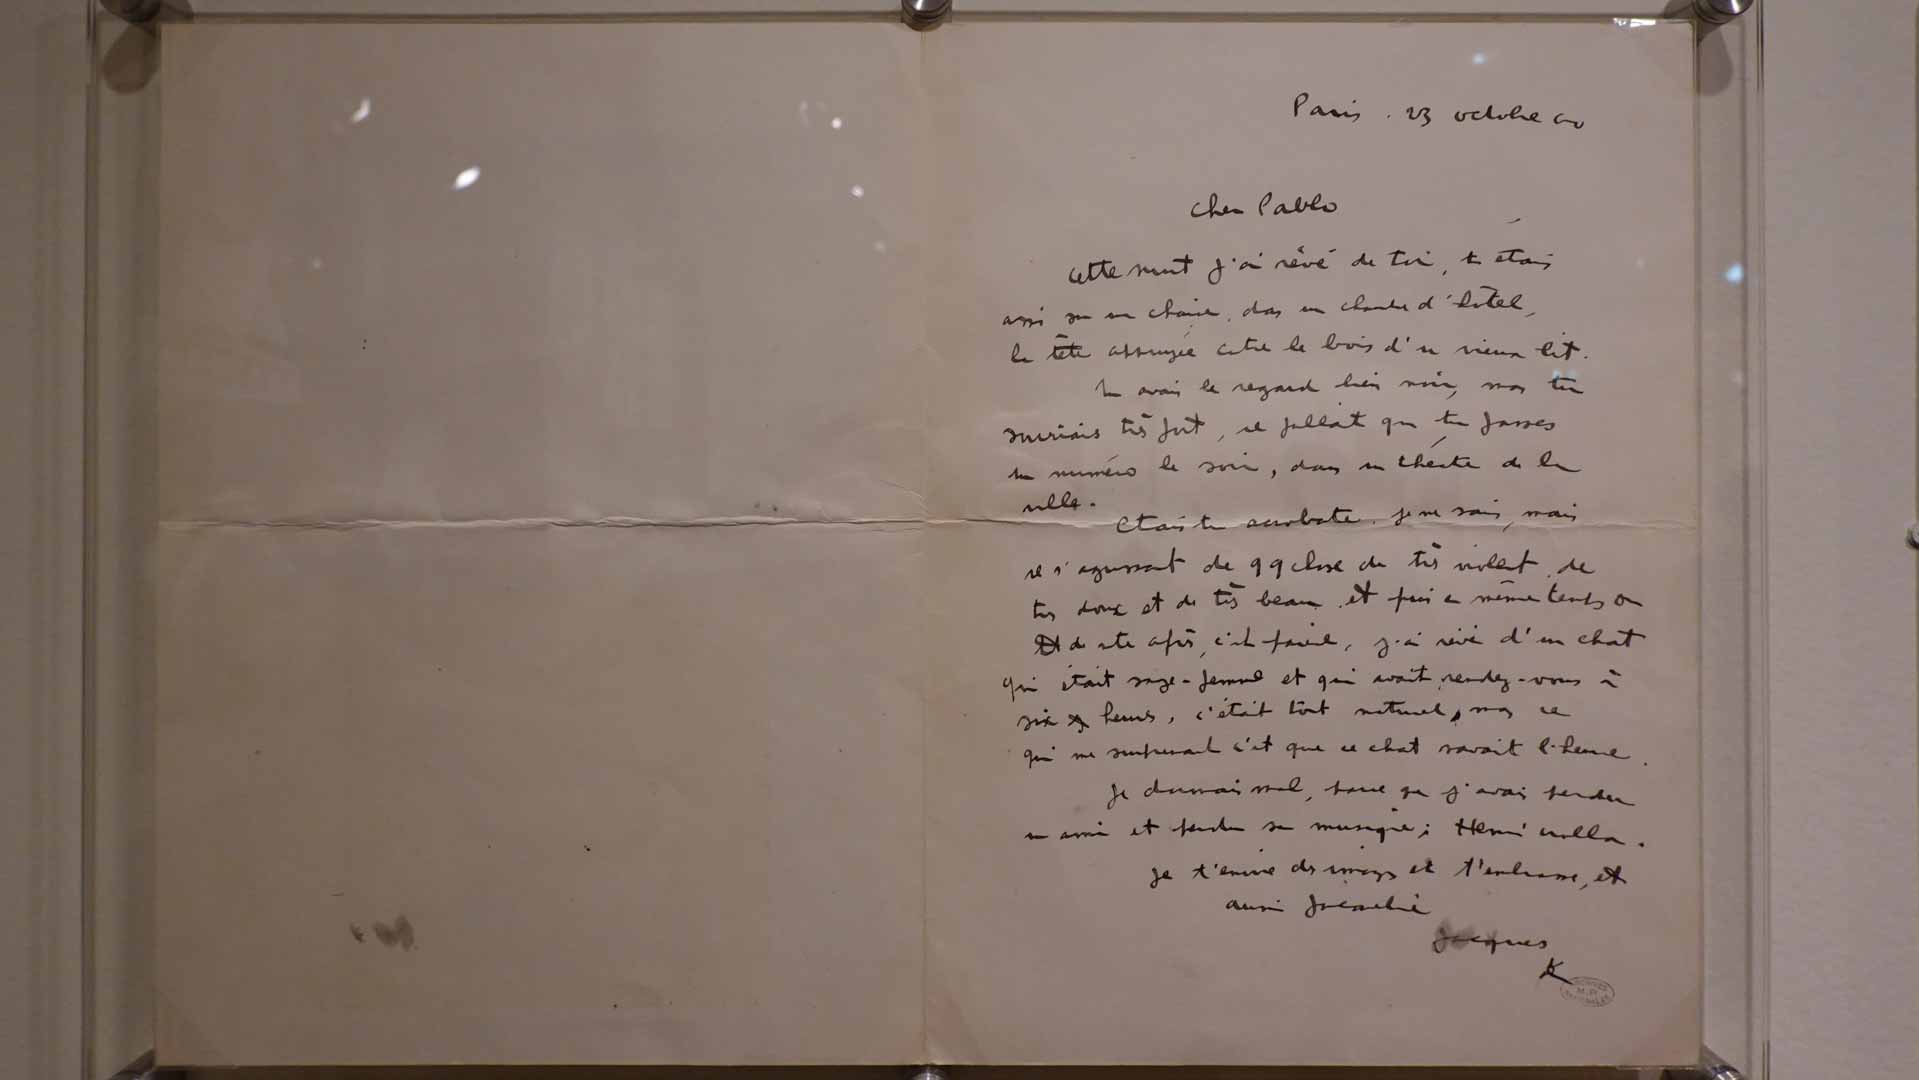 Paris . 23 octobre 60
Cher Pablo
Cette nuit j'ai rêvé de toi, tu étais
assis sur une chaise, dans une chambre d'hôtel,
la tête appuyée contre le bois d'un vieux lit.
Tu avais le regard bien noir, mais tu
souriais très fort, il fallait que tu fasses
un numéro le soir, dans un théâtre de la
ville.
Etais tu acrobate. je ne sais, mais
il s'agissait de qq chose de très violent. de
très doux et de très beau. et puis en même temps ou
de suite après, c'est pareil, j'ai rêvé d'un chat
qui était sage-femme et qui avait rendez-vous à
six heures, c'était tout naturel, mais ce
qui me surprenait c'est que ce chat savait l'heure.
Je dormais mal, parce que j'avais perdu
un ami et perdu sa musique; Henri Crolla.
Je t'envoie des images et t'embrasse, et
aussi Jacqueline
Jacques